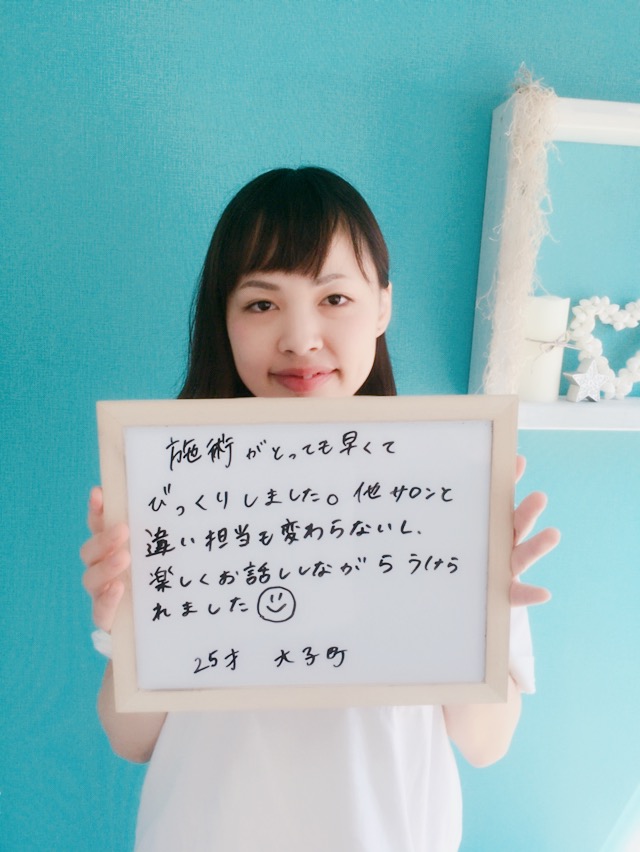 施術がとっても早くて
びっくりしました。他サロンと
違い担当も変わらないし、
楽しくお話ししながらうけら
れました
25才 大子町